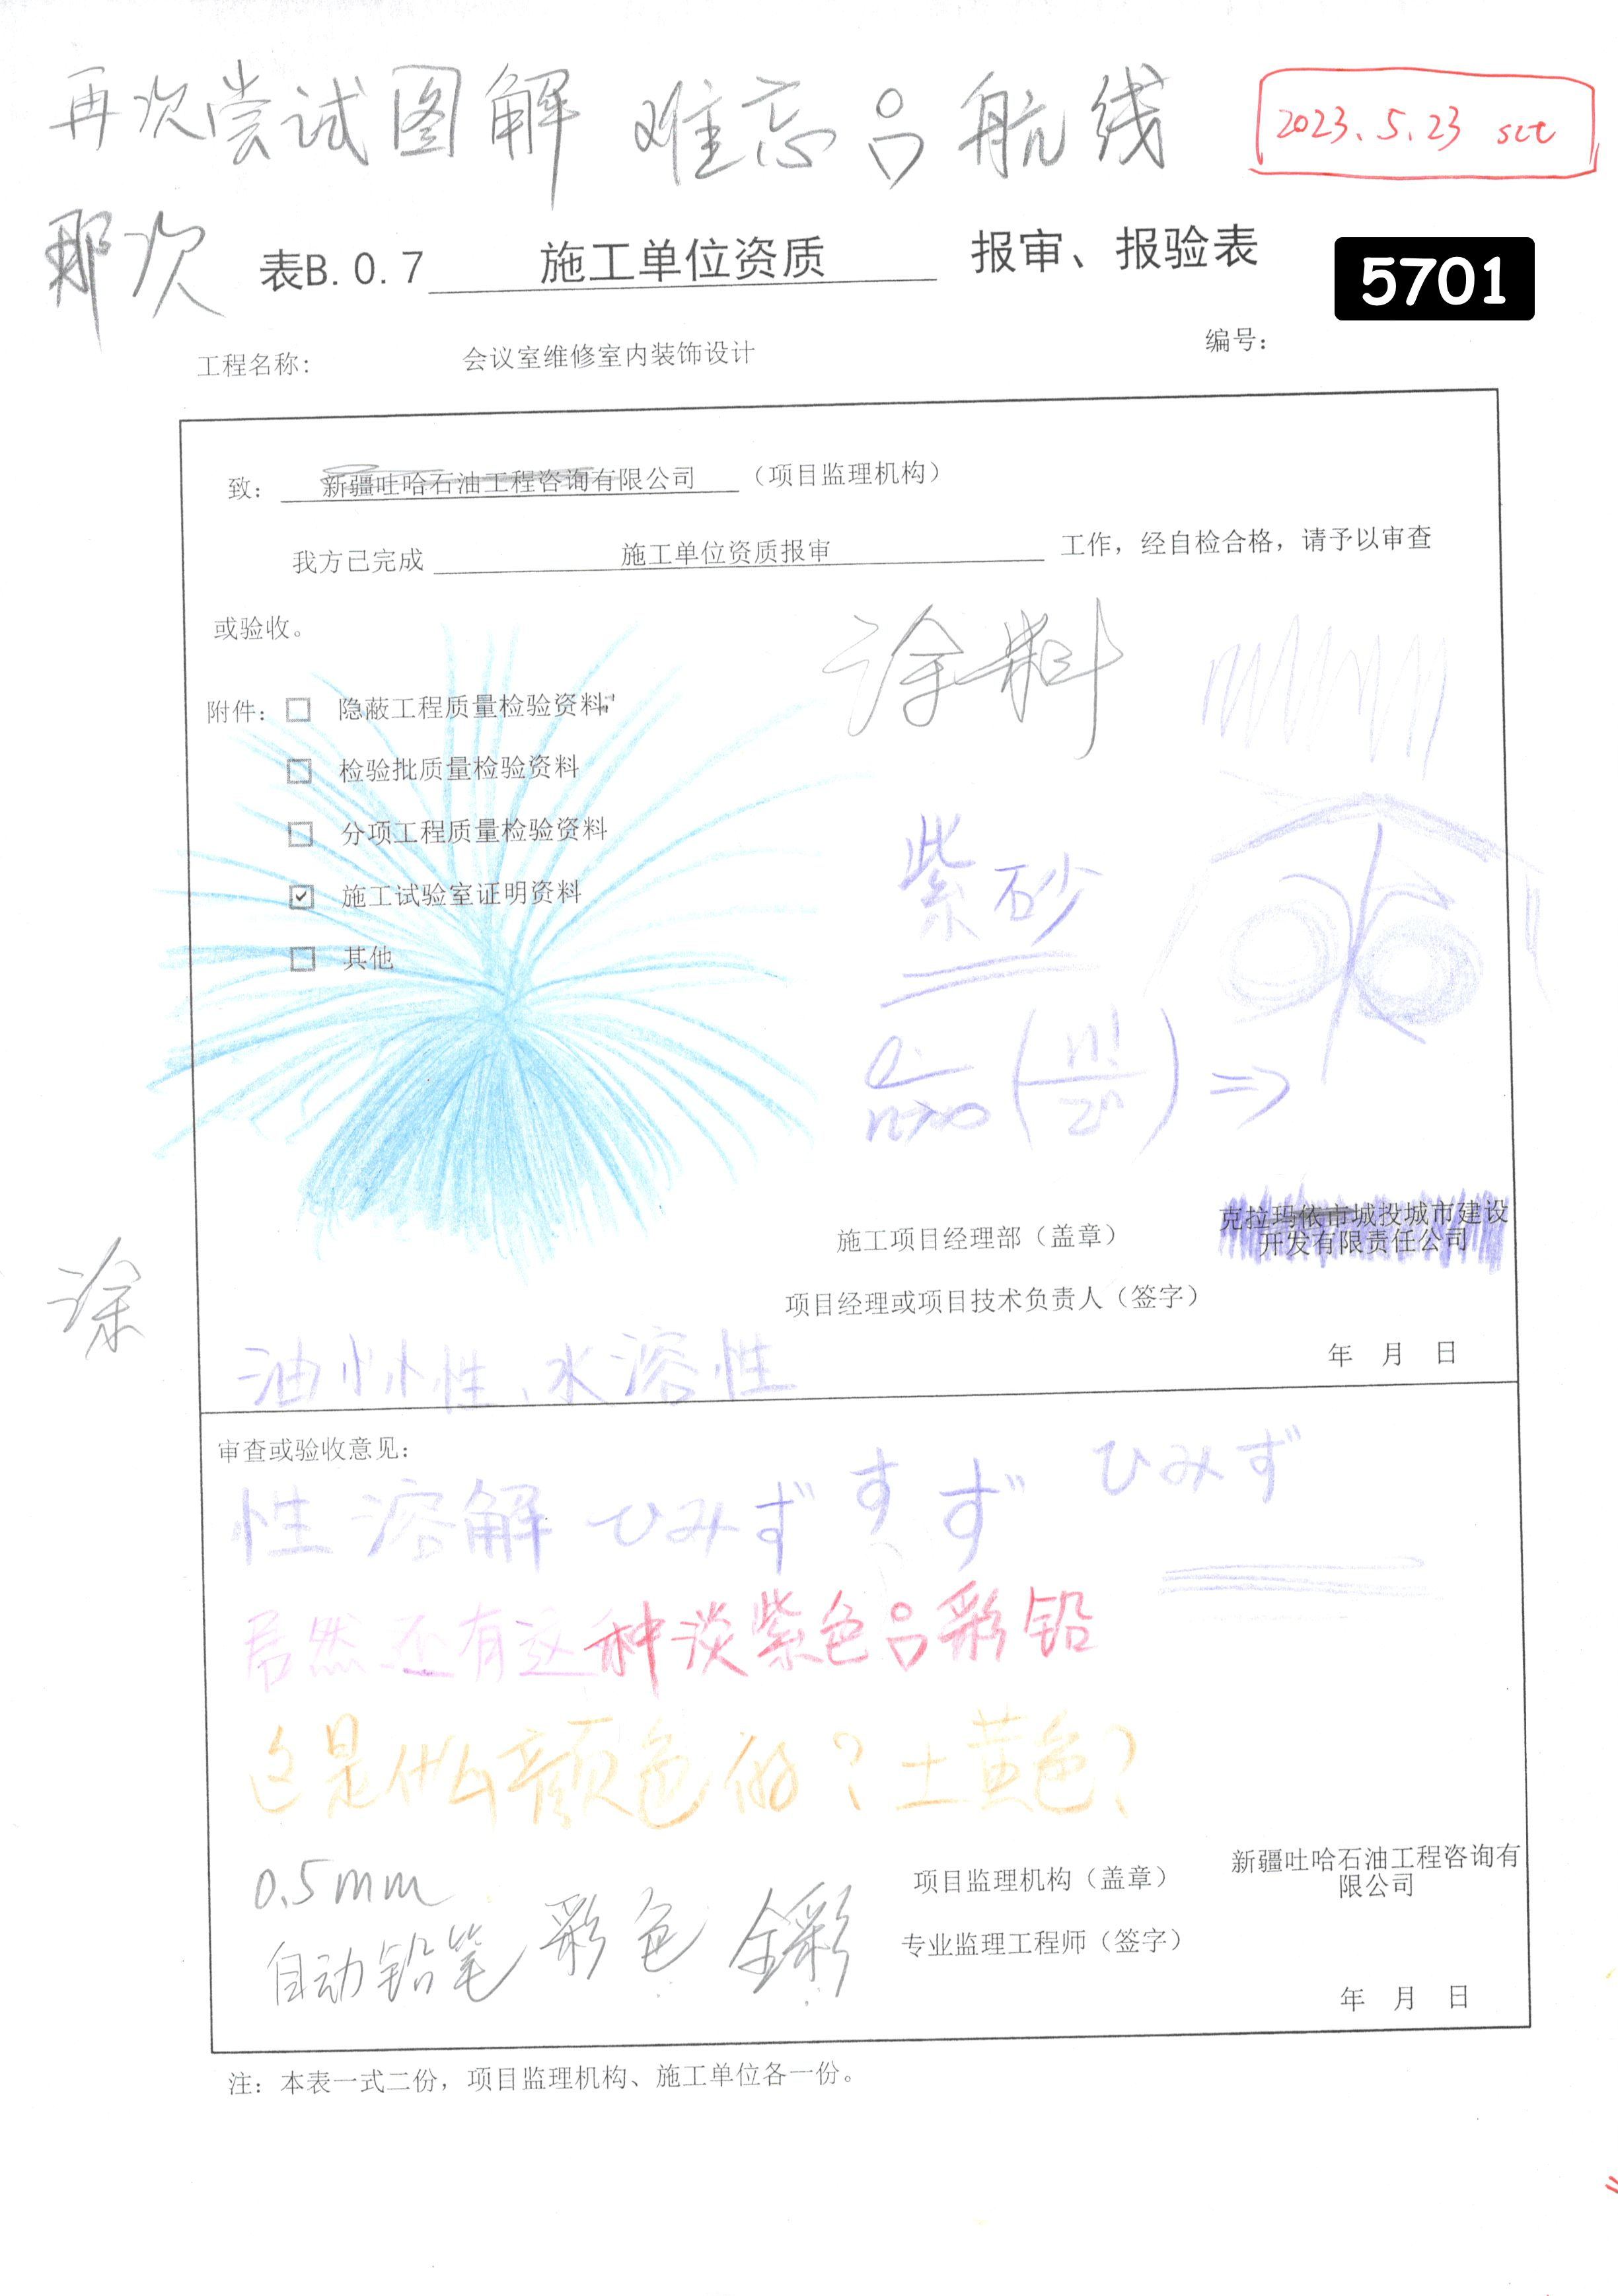 再次尝试图解 难忘的航线
2023.5.23 sct
那次
表B.0.7 施工单位资质 报审、报验表
5701
工程名称: 会议室维修室内装饰设计
编号:
致: 新疆吐哈石油工程咨询有限公司 (项目监理机构)
我方已完成 施工单位资质报审 工作, 经自检合格, 请予以审查
或验收。
涂料
附件: □ 隐蔽工程质量检验资料
□ 检验批质量检验资料
□ 分项工程质量检验资料
☑ 施工试验室证明资料
□ 其他
紫砂
n→∞ (n!/2ⁿ) ⇒
施工项目经理部(盖章)
克拉玛依市城投城市建设
开发有限责任公司
涂
项目经理或项目技术负责人(签字)
年 月 日
油性、水溶性
审查或验收意见:
性溶解 ひみず す ず ひみず
居然还有这种淡紫色的彩铅
这是什么颜色的?土黄色?
0.5mm
自动铅笔 彩色 全彩
项目监理机构(盖章)
新疆吐哈石油工程咨询有
限公司
专业监理工程师(签字)
年 月 日
注: 本表一式二份, 项目监理机构、施工单位各一份。